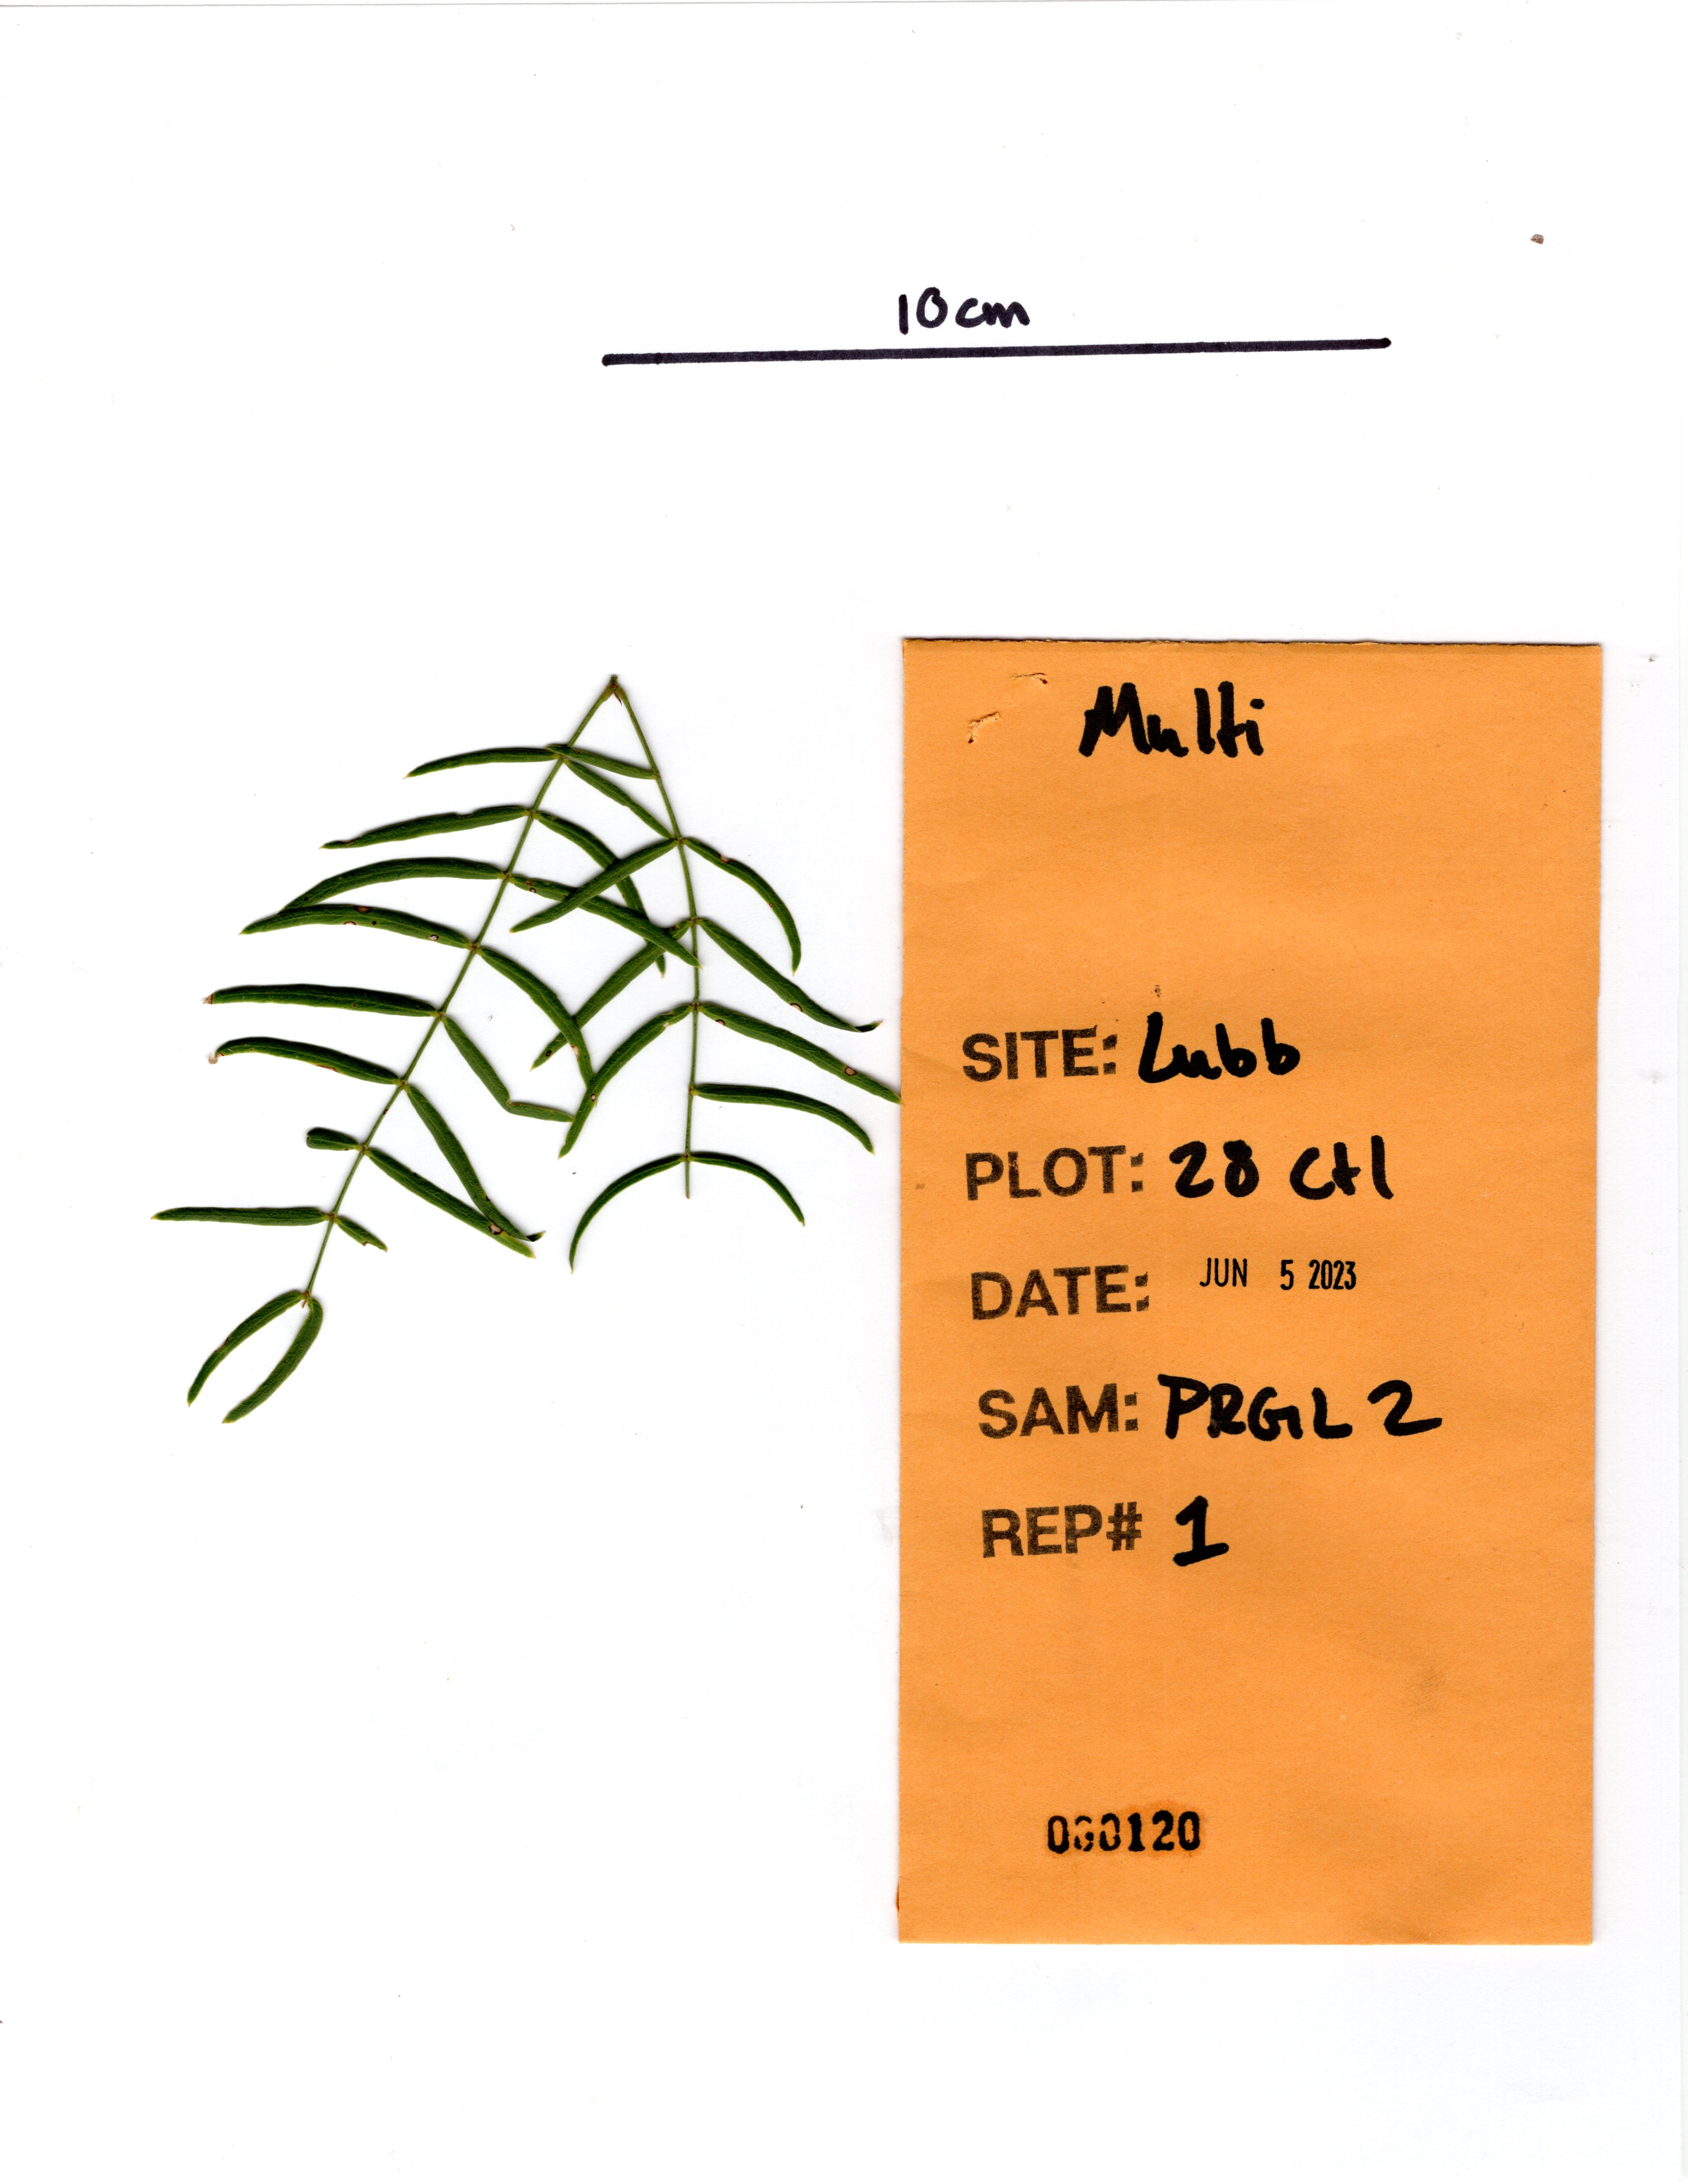 10cm
Multi
SITE: Lubb
PLOT: 28 Ctl
DATE: JUN 5 2023
SAM: PRGL 2
REP# 1
000120